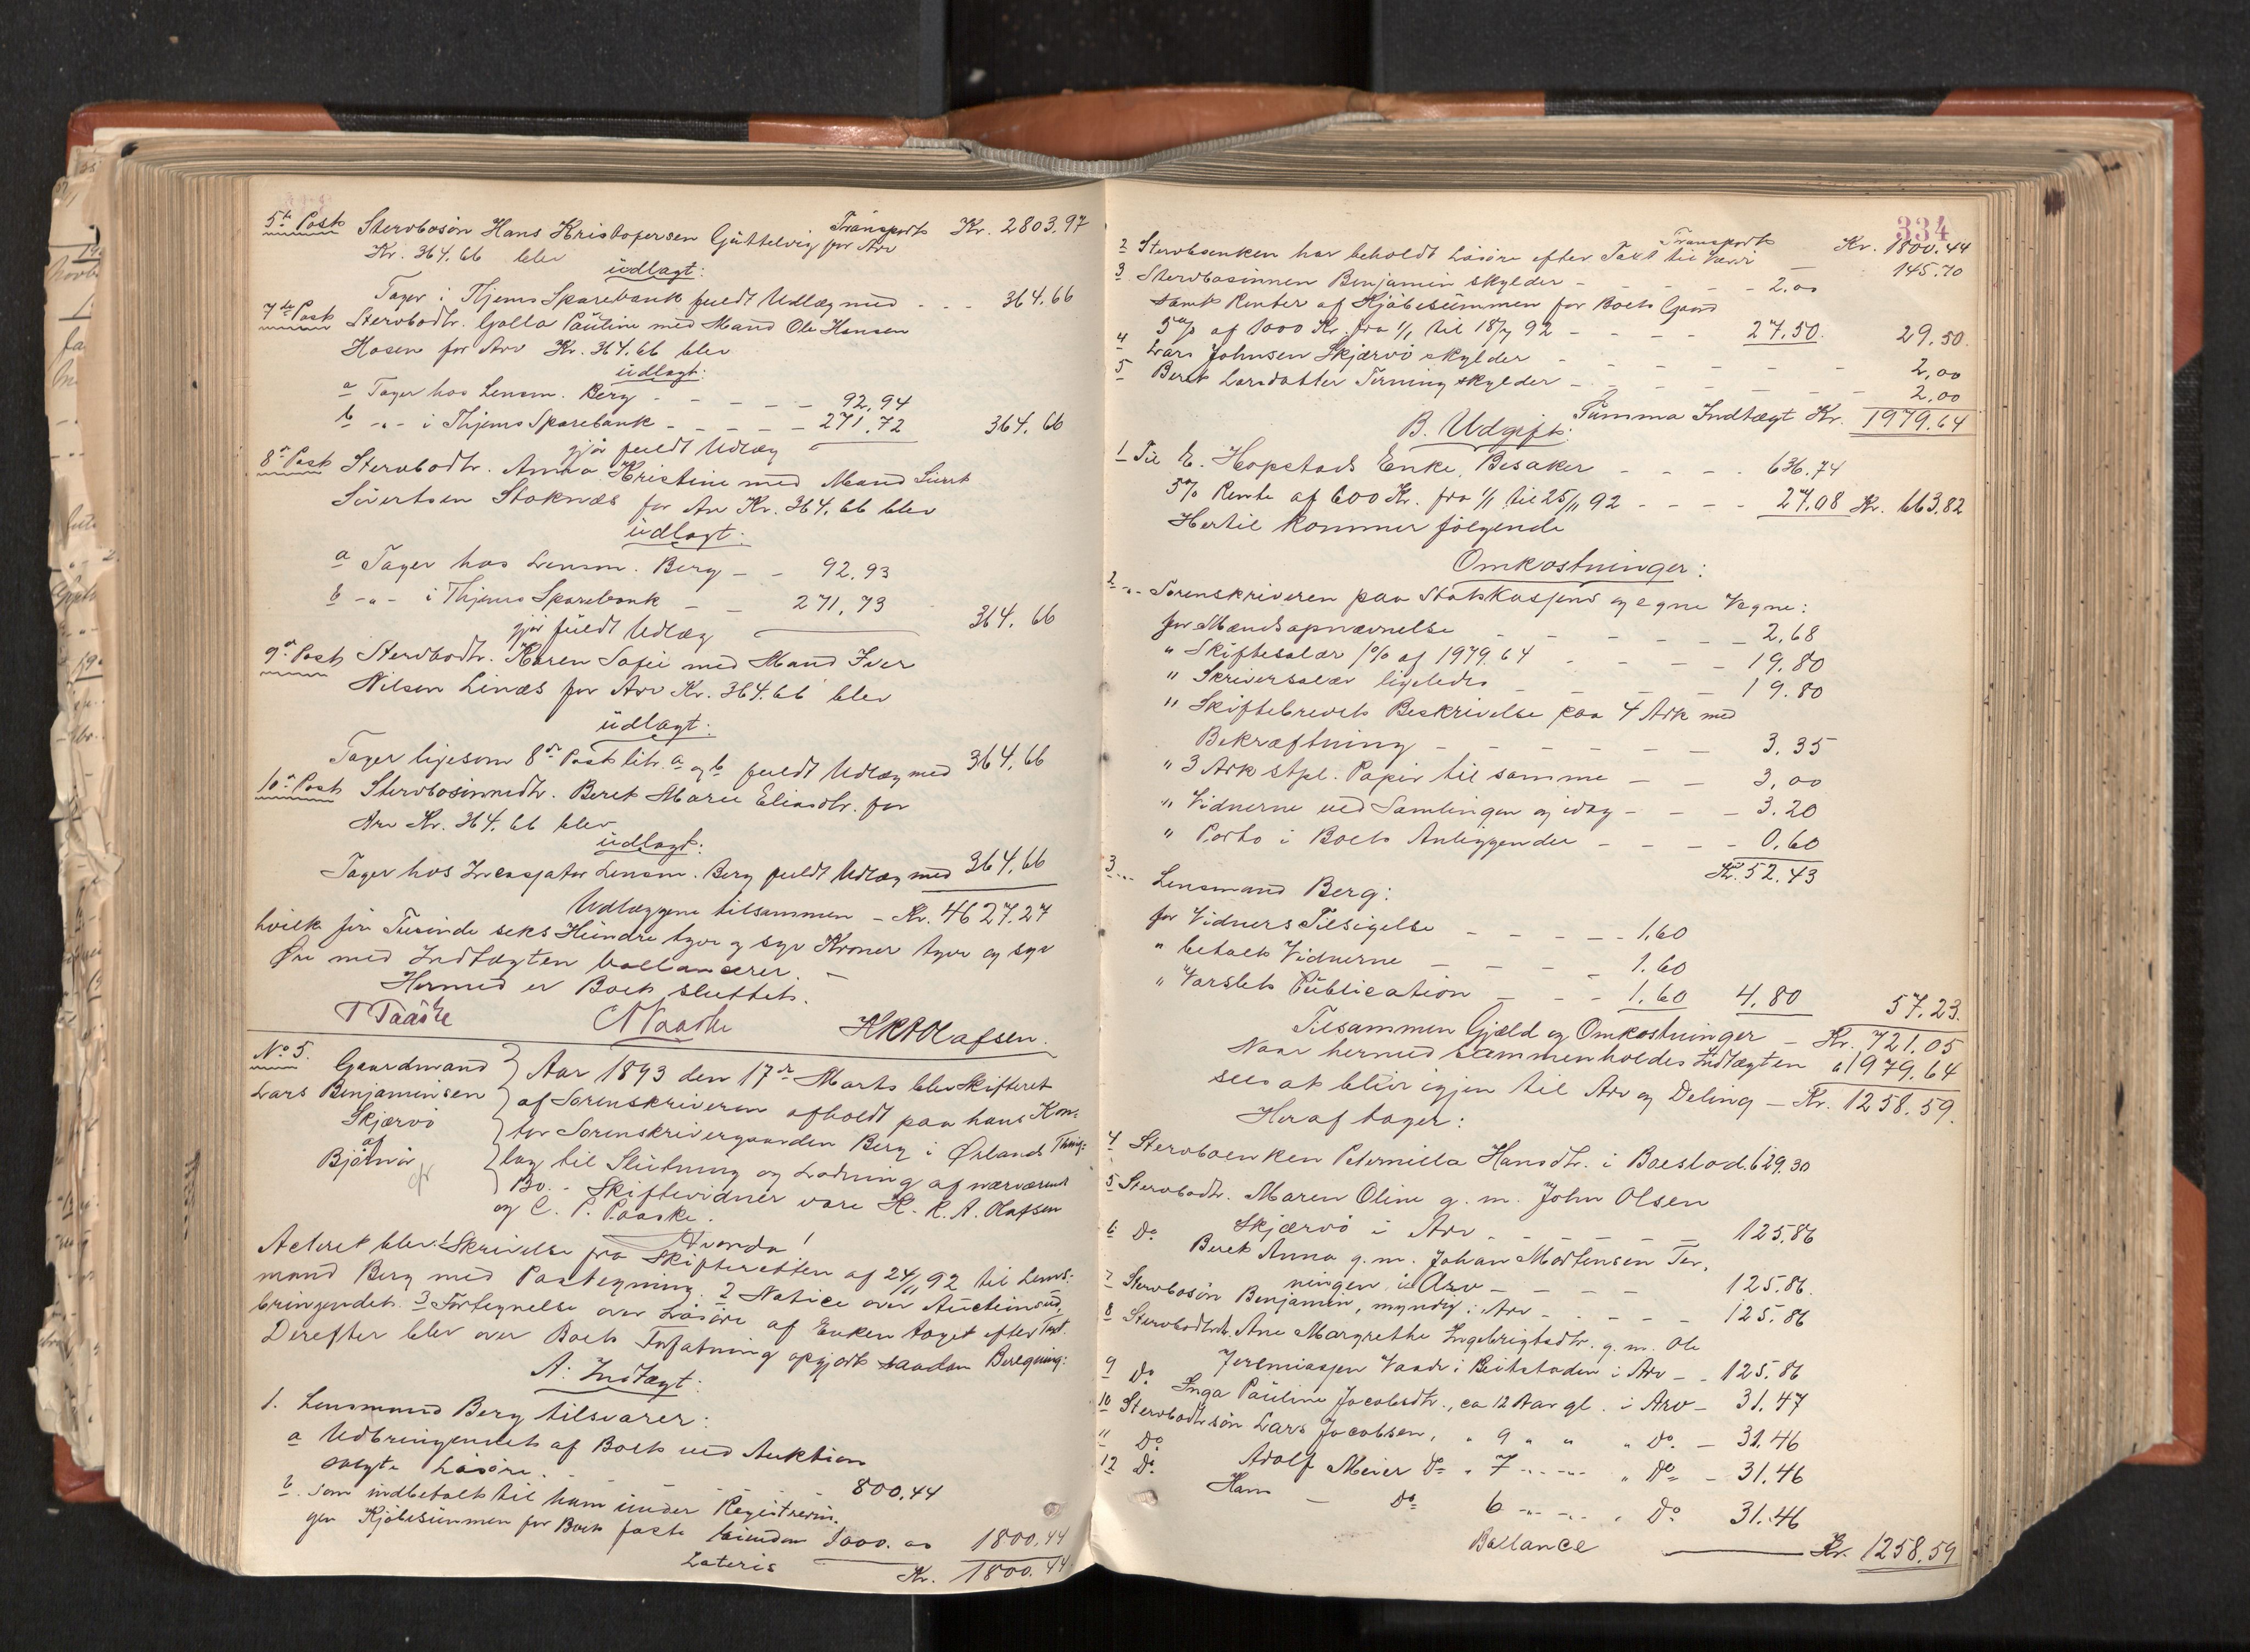 Transport Kr. 2803.97
5te Post Stervbosøn Hans Kristofersen Güttelvig for Arv
Kr. 364.66 blev
udlagt:
Tager i Thjems Sparebank fuldt Udlæg med - - - 364.66
7de Post Stervbodtr. Golla Pauline med Mand Ole Hansen
Hosen for Arv Kr. 364.66 blev
udlagt:
a Tager hos Lensm. Berg - - - - - 92.94
b -"- i Thjems Sparebank - - - - - 271.72 364.66
gjør fuldt Udlæg
8de Post Stervbodtr. Anna Kristine med Mand Sivert
Sivertsen Stoknæs for Arv Kr. 364.66 blev
udlagt:
a Tager hos Lensm. Berg - - 92.93
b -"- i Thjems Sparebank - - 271.73 364.66
gjør fuldt Udlæg
9de Post Stervbodtr. Karen Sofie med Mand Iver
Nilsen Linæs for Arv Kr. 364.66 blev
udlagt:
Tager ligesom 8de Post litr. a og b fuldt Udlæg med 364.66
10de Post Stervbosønnedtr. Beret Marie Eliasdtr. for
Arv Kr. 364.66 blev
udlagt:
Tager hos Incassator Lensm. Berg fuldt Udlæg med 364.66
Udlæggene tilsammen - Kr. 4627.27
hvilke fire Tusinde seks Hundre tyve og syv Kroner tyve og syv
Øre med Indtægten ballancerer. -
Hermed er Boet sluttet.
T Paaske N Paaske H K A Olafsen.
No 5. Gaardmand
Lars Benjaminsen
Skjærvö
af
Bjørnør
Aar 1893 den 17de Marts blev Skifteret
af Sorenskriveren afholdt paa hans Kon-
tor Sorenskrivergaarden Berg i Ørlands Thing-
lag til Slutning og Lodning af nærværende
Bo. - Skiftevidner vare H. K. A. Olafsen
og C. P. Paaske.
Acteret blev: 1 Skrivelse fra Skifteretten af 24/11 92 til Lens-
mand Berg med Paategning. 2 Notice over Auctionsud-
bringendet. 3 Fortegnelse over Løsøre af Enken taget efter Taxt.
Derefter blev over Boets Forfatning opgjort saadan Beregning:
A: Indtægt:
1. Lensmand Berg tilsvarer:
a Udbringendet af Boets ved Auktion
solgte Løsøre. - - - - - 800.44
b. som indbetalt til ham under Registrerin-
gen Kjøbesummen for Boets faste Eiendom 1000.00 1800.44
Lateris Kr. 1800.44
334
Transport Kr. 1800.44
2 Stervbaenken har beholdt Løsøre efter Taxt til Værdi - 145.70
3 Stervbosønnen Benjamin skylder - - - - - 2.00
samt Renter af Kjøbesummen for Boets Gaard
5% af 1000 Kr. fra 1/1 til 18/7 92 - - - - 27.50. 29.50.
4 Lars Johnsen Skjærvö skylder - - - - - - - 2,00
5 Beret Larsdatter Terning skylder - - - - - - - 2.00
Summa Indtægt Kr. 1979.64
B. Udgift:
1 Til E. Hopstads Enke, Besaker - - - - 636.74
5% Rente af 600 Kr. fra 1/1 til 25/11 92 - - - - 27.08 Kr. 663.82
Hertil kommer følgende
Omkostninger:
2 -"- Sorenskriveren paa Statskassens og egne Vegne:
for Mændsopnævnelse - - - - - - 2.68
" Skiftesalær 1% af 1979.64 - - - - 19.80
" Skriversalær ligeledes - - - - 19.80
" Skiftebrevets Beskrivelse paa 4 Ark med
Bekræftning - - - - - - 3.35
" 3 Ark stpl. Papir til samme - - 3,00
" Vidnerne ved Samlingen og idag - - - 3.20
" Porto i Boets Anliggender - - - - 0.60
Kr. 52.43
3 ... Lensmand Berg:
for Vidners Tilsigelse - - - - - 1.60
" betalt Vidnerne - - - - 1.60
" Varslets Publication - - - 1.60 4.80 57.23.
Tilsammen Gjæld og Omkostninger - Kr. 721.05
Naar hermed sammenholdes Indtægten " 1979.64
sees at blive igjen til Arv og Deling - Kr. 1258.59.
Heraf tager:
4 Stervboenken Peternilla Hansdtr. i Boeslod. 629.30
5 Stervbodtr. Maren Oline g. m. John Olsen
Skjærvö i Arv - - - - - - 125.86
6 Do Beret Anna g. m. Johan Mortensen Ter-
ningen i Arv - - - - 125.86.
7 Stervbosøn Benjamin, myndig i Arv - - - - - 125.86
8 Stervbodtrdtr. Ane Margrethe Ingebrigtsdtr. g. m. Ole
Jeremiassen Vaade i Beitstaden i Arv - - 125.86
9 Do Inga Pauline Jacobsdtr., ca 12 Aar gl. i Arv - 31.47
10 Stervbodtrsøn Lars Jacobsen, " 9 " " " Do. - 31.46
11 Do Adolf Meier Do " 7 -"- -"- " Do - 31.46
12 Do. Hans - Do 6 -"- -"- " Do 31.46
Ballance Kr. 1258.59